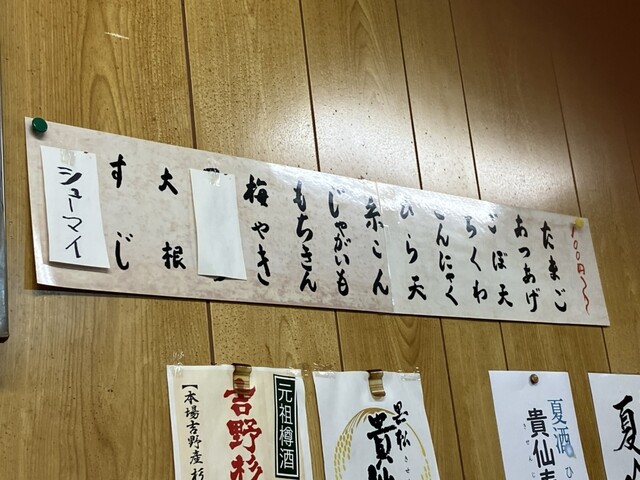 100円〜
たまご
あつあげ
ごぼ天
ちくわ
こんにゃく
ひら天
糸こん
じゃがいも
もちきん
梅やき
大根
すじ
シューマイ
夏酒
貴仙寿
黒松
貴仙
元祖樽酒
吉野杉
【本場吉野産杉